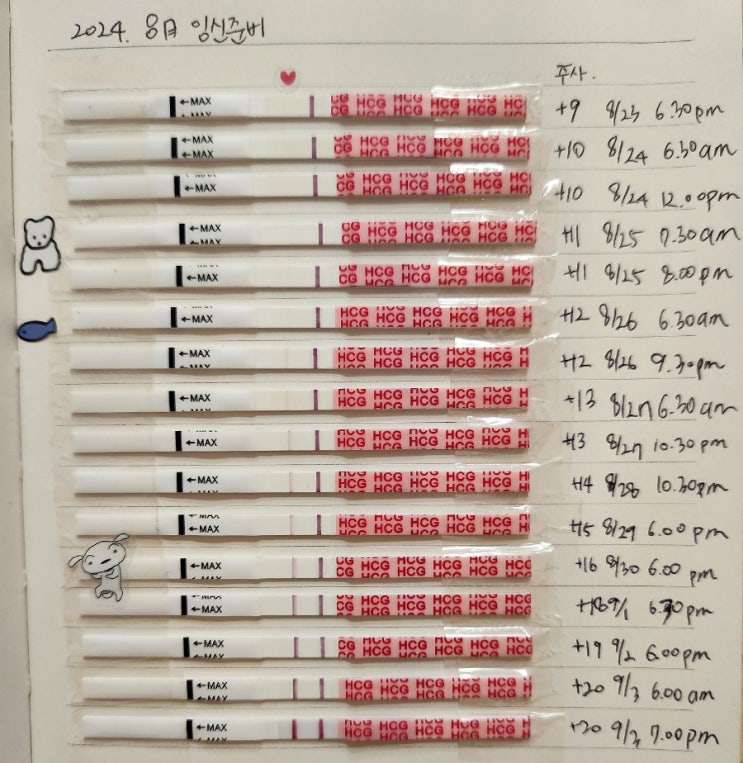 2024. 8月 임신준비
주사.
←MAX HCG HCG HCG HCG HCG +9 8/23 6.30pm
←MAX HCG HCG HCG HCG HCG +10 8/24 6.30am
←MAX HCG HCG HCG HCG HCG +10 8/24 12.00pm
←MAX HCG HCG HCG HCG HCG +11 8/25 7.30am
←MAX HCG HCG HCG HCG HCG +11 8/25 8.00pm
←MAX HCG HCG HCG HCG HCG +12 8/26 6.30am
←MAX HCG HCG HCG HCG HCG +12 8/26 9.30pm
←MAX HCG HCG HCG HCG HCG +13 8/27 6.30am
←MAX HCG HCG HCG HCG HCG +13 8/27 10.30pm
←MAX HCG HCG HCG HCG HCG +14 8/28 10.30pm
←MAX HCG HCG HCG HCG HCG +15 8/29 6.00pm
←MAX HCG HCG HCG HCG HCG +16 8/30 6.00 pm
←MAX HCG HCG HCG HCG HCG +18 9/1 6.30pm
←MAX HCG HCG HCG HCG HCG +19 9/2 6.00pm
←MAX HCG HCG HCG HCG HCG +20 9/3 6.00am
←MAX HCG HCG HCG HCG HCG +20 9/3 7.00pm